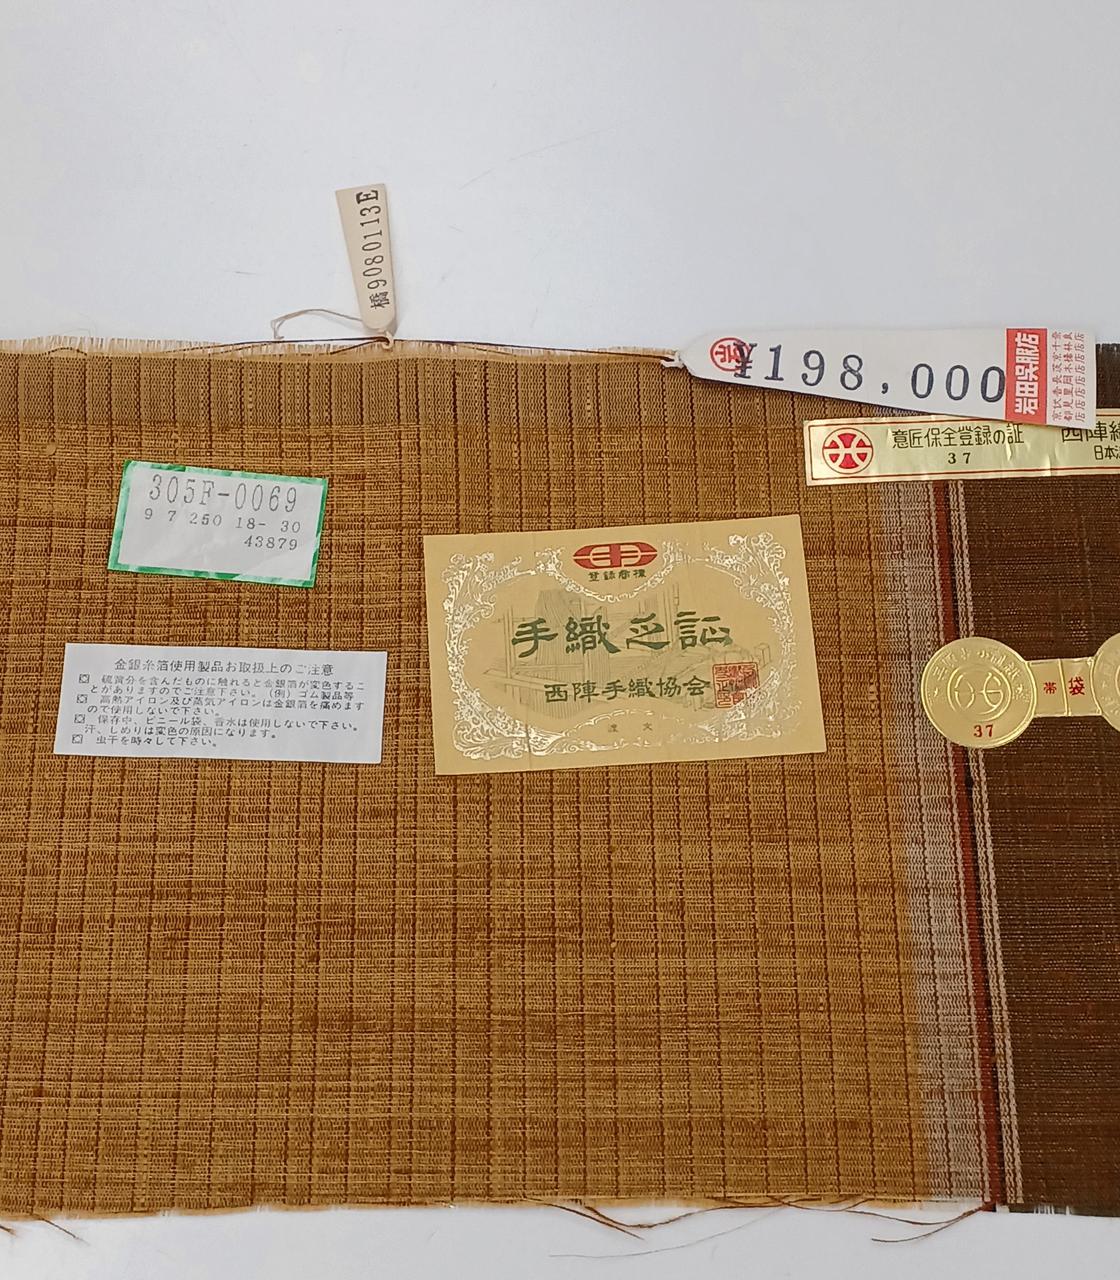 橋9080113E
¥198,000
岩田呉服店
意匠保全登録の証
37
西陣織
日本
305F-0069
9 7 250 18- 30
43879
登録商標
手織之証
西陣手織協会
金銀糸箔使用製品お取扱上のご注意
硫黄分を含んだものに触れると金銀箔が変色するこ
とがありますのでご注意下さい。(例)ゴム製品等
高熱アイロン及び蒸気アイロンは金銀箔を痛めます
ので使用しないで下さい。
保存中、ビニール袋、香水は使用しないで下さい。
汗、しめりは変色の原因になります。
虫干を時々して下さい。
37
帯
袋